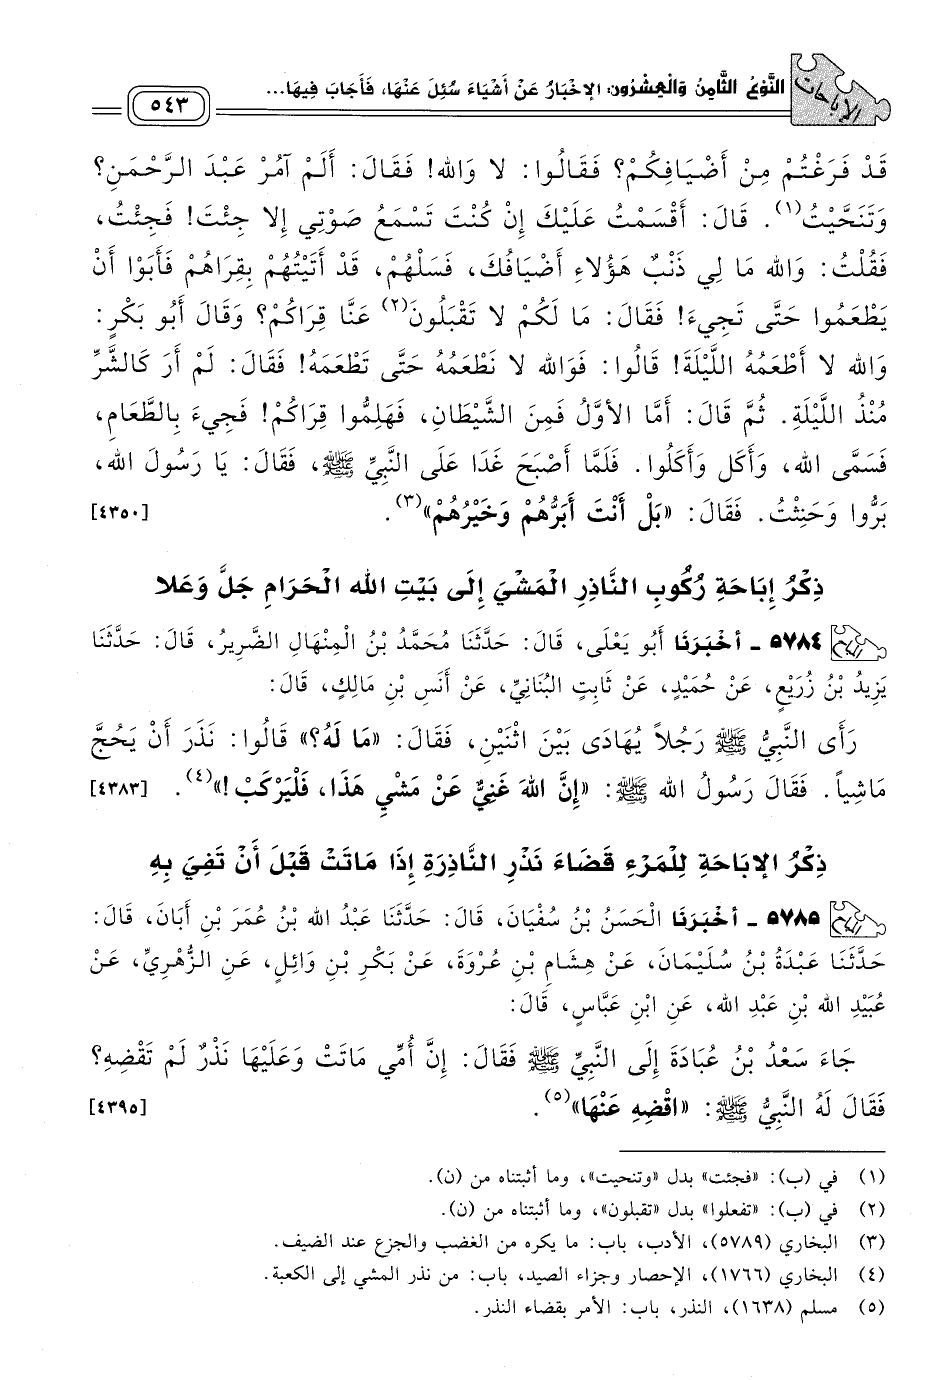 الإباحات
النَّوْعُ الثَّامِنُ وَالْعِشْرُون: الإخْبَارُ عَنْ أَشْيَاءَ سُئِلَ عَنْهَا، فَأَجَابَ فِيهَا...
٥٤٣
قَدْ فَرَغْتُمْ مِنْ أَضْيَافِكُمْ؟ فَقَالُوا: لا وَالله! فَقَالَ: أَلَمْ آمُرْ عَبْدَ الرَّحْمَنِ؟
وَتَنَحَّيْتُ(١). قَالَ: أَقْسَمْتُ عَلَيْكَ إِنْ كُنْتَ تَسْمَعُ صَوْتِي إِلا جِئْتَ! فَجِئْتُ،
فَقُلْتُ: وَالله مَا لِي ذَنْبٌ هَؤُلاءِ أَضْيَافُكَ، فَسَلْهُمْ، قَدْ أَتَيْتُهُمْ بِقِرَاهُمْ فَأَبَوْا أَنْ
يَطْعَمُوا حَتَّى تَجِيءَ! فَقَالَ: مَا لَكُمْ لا تَقْبَلُونَ(٢) عَنَّا قِرَاكُمْ؟ وَقَالَ أَبُو بَكْرٍ:
وَالله لا أَطْعَمُهُ اللَّيْلَةَ! قَالُوا: فَوَالله لا نَطْعَمُهُ حَتَّى تَطْعَمَهُ! فَقَالَ: لَمْ أَرَ كَالشَّرِّ
مُنْذُ اللَّيْلَةِ. ثُمَّ قَالَ: أَمَّا الأوَّلُ فَمِنَ الشَّيْطَانِ، فَهَلِمُّوا قِرَاكُمْ! فَجِيءَ بِالطَّعَامِ،
فَسَمَّى الله، وَأَكَل وَأَكَلُوا. فَلَمَّا أَصْبَحَ غَدَا عَلَى النَّبِيِّ ﷺ، فَقَالَ: يَا رَسُولَ الله،
بَرُّوا وَحَنِثْتُ. فَقَالَ: «بَلْ أَنْتَ أَبَرُّهُمْ وَخَيْرُهُمْ»(٣). [٤٣٥٠]
ذِكْرُ إِبَاحَةِ رُكُوبِ النَّاذِرِ الْمَشْيَ إِلَى بَيْتِ الله الْحَرَامِ جَلَّ وَعَلا
٥٧٨٤ - أَخْبَرَنَا أَبُو يَعْلَى، قَالَ: حَدَّثَنَا مُحَمَّدُ بْنُ الْمِنْهَالِ الضَّرِيرُ، قَالَ: حَدَّثَنَا
يَزِيدُ بْنُ زُرَيْعٍ، عَنْ حُمَيْدٍ، عَنْ ثَابِتٍ البُنَانِيِّ، عَنْ أَنَسِ بْنِ مَالِكٍ، قَالَ:
رَأَى النَّبِيُّ ﷺ رَجُلاً يُهَادَى بَيْنَ اثْنَيْنِ، فَقَالَ: «مَا لَهُ؟» قَالُوا: نَذَرَ أَنْ يَحُجَّ
مَاشِياً. فَقَالَ رَسُولُ الله ﷺ: «إِنَّ اللهَ غَنِيٌّ عَنْ مَشْيِ هَذَا، فَلْيَرْكَبْ!»(٤). [٤٣٨٣]
ذِكْرُ الإبَاحَةِ لِلْمَرْءِ قَضَاءَ نَذْرِ النَّاذِرَةِ إِذَا مَاتَتْ قَبْلَ أَنْ تَفِيَ بِهِ
٥٧٨٥ - أَخْبَرَنَا الْحَسَنُ بْنُ سُفْيَانَ، قَالَ: حَدَّثَنَا عَبْدُ الله بْنُ عُمَرَ بْنِ أَبَانَ، قَالَ:
حَدَّثَنَا عَبْدَةُ بْنُ سُلَيْمَانَ، عَنْ هِشَامِ بْنِ عُرْوَةَ، عَنْ بَكْرِ بْنِ وَائِلٍ، عَنِ الزُّهْرِيِّ، عَنْ
عُبَيْدِ الله بْنِ عَبْدِ الله، عَنِ ابْنِ عَبَّاسٍ، قَالَ:
جَاءَ سَعْدُ بْنُ عُبَادَةَ إِلَى النَّبِيِّ ﷺ فَقَالَ: إِنَّ أُمِّي مَاتَتْ وَعَلَيْهَا نَذْرٌ لَمْ تَقْضِهِ؟
فَقَالَ لَهُ النَّبِيُّ ﷺ: «اقْضِهِ عَنْهَا»(٥). [٤٣٩٥]
(١) في (ب): «فجئت» بدل «وتنحيت»، وما أثبتناه من (ن).
(٢) في (ب): «تفعلوا» بدل «تقبلون»، وما أثبتناه من (ن).
(٣) البخاري (٥٧٨٩)، الأدب، باب: ما يكره من الغضب والجزع عند الضيف.
(٤) البخاري (١٧٦٦)، الإحصار وجزاء الصيد، باب: من نذر المشي إلى الكعبة.
(٥) مسلم (١٦٣٨)، النذر، باب: الأمر بقضاء النذر.